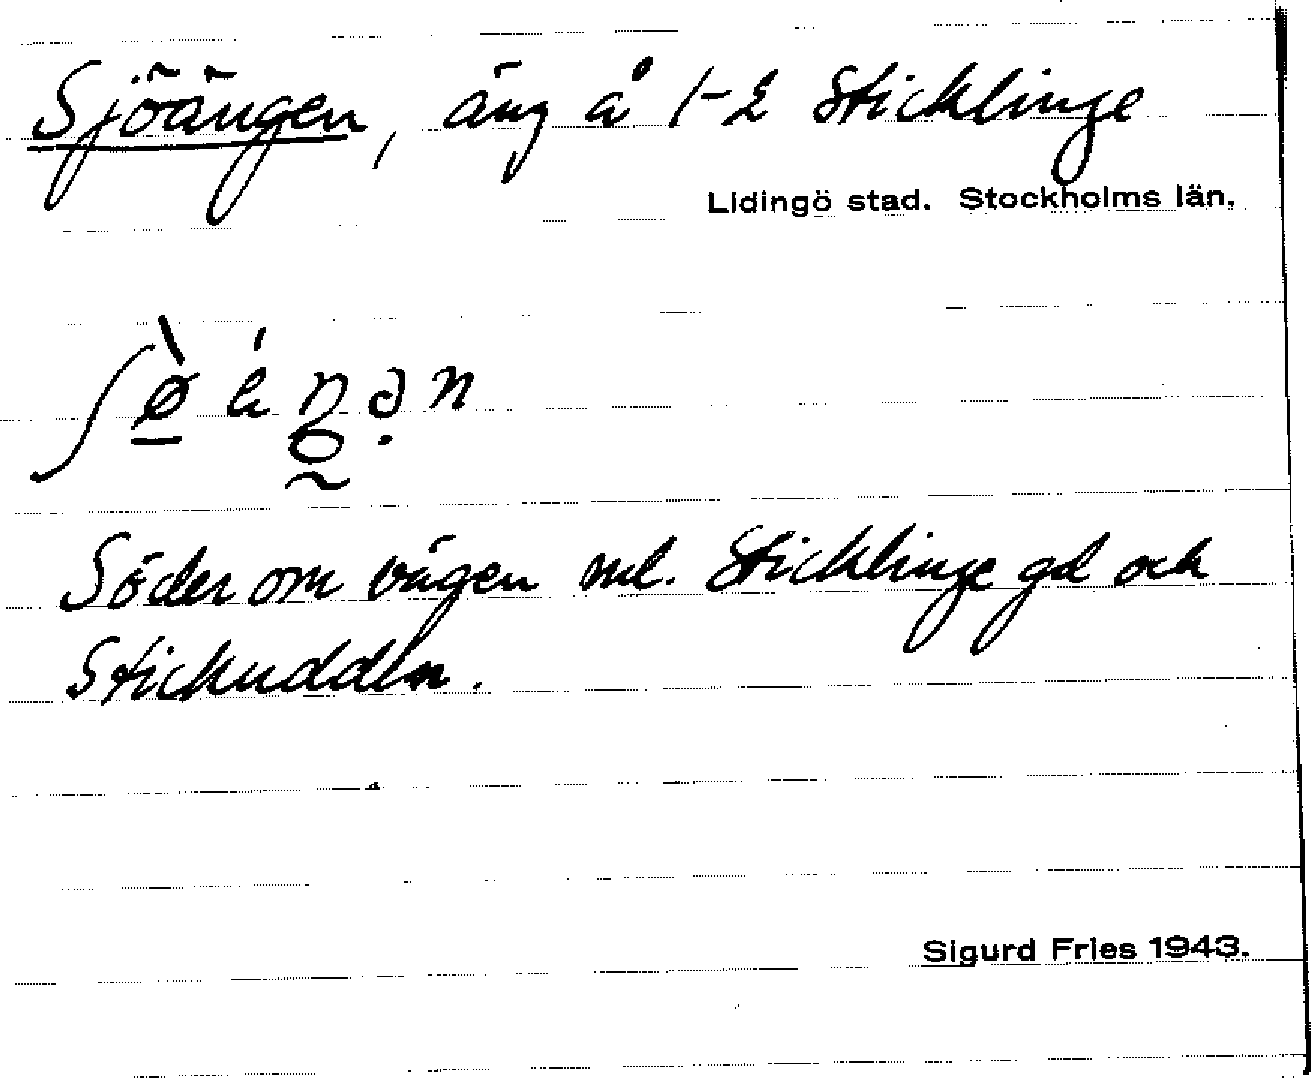 Sjöängen, äng å 1-2 Sticklinge
Lidingö stad. Stockholms län.
ʃø̠̀ ä́ŋ̥ə̣n
Söder om vägen ml. Sticklinge gd och
Stickudden.
Sigurd Fries 1943.